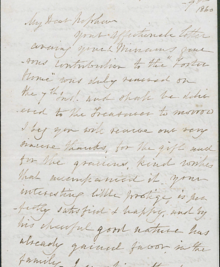 1860
My Dear Nephew
Your affectionate letter
covering your & Miriam's gene
rous contribution to the "Foster
Home" was duly received on
the 7th inst. and shall be deliv
ered to the Treasurer to morrow
I beg you will receive our very
sincere thanks, for the gift and
for the gracious, kind wishes
that accompanied it, your
interesting little protege is per
fectly satisfied & happy, and by
his cheerful good nature has
already gained favor in the
family,